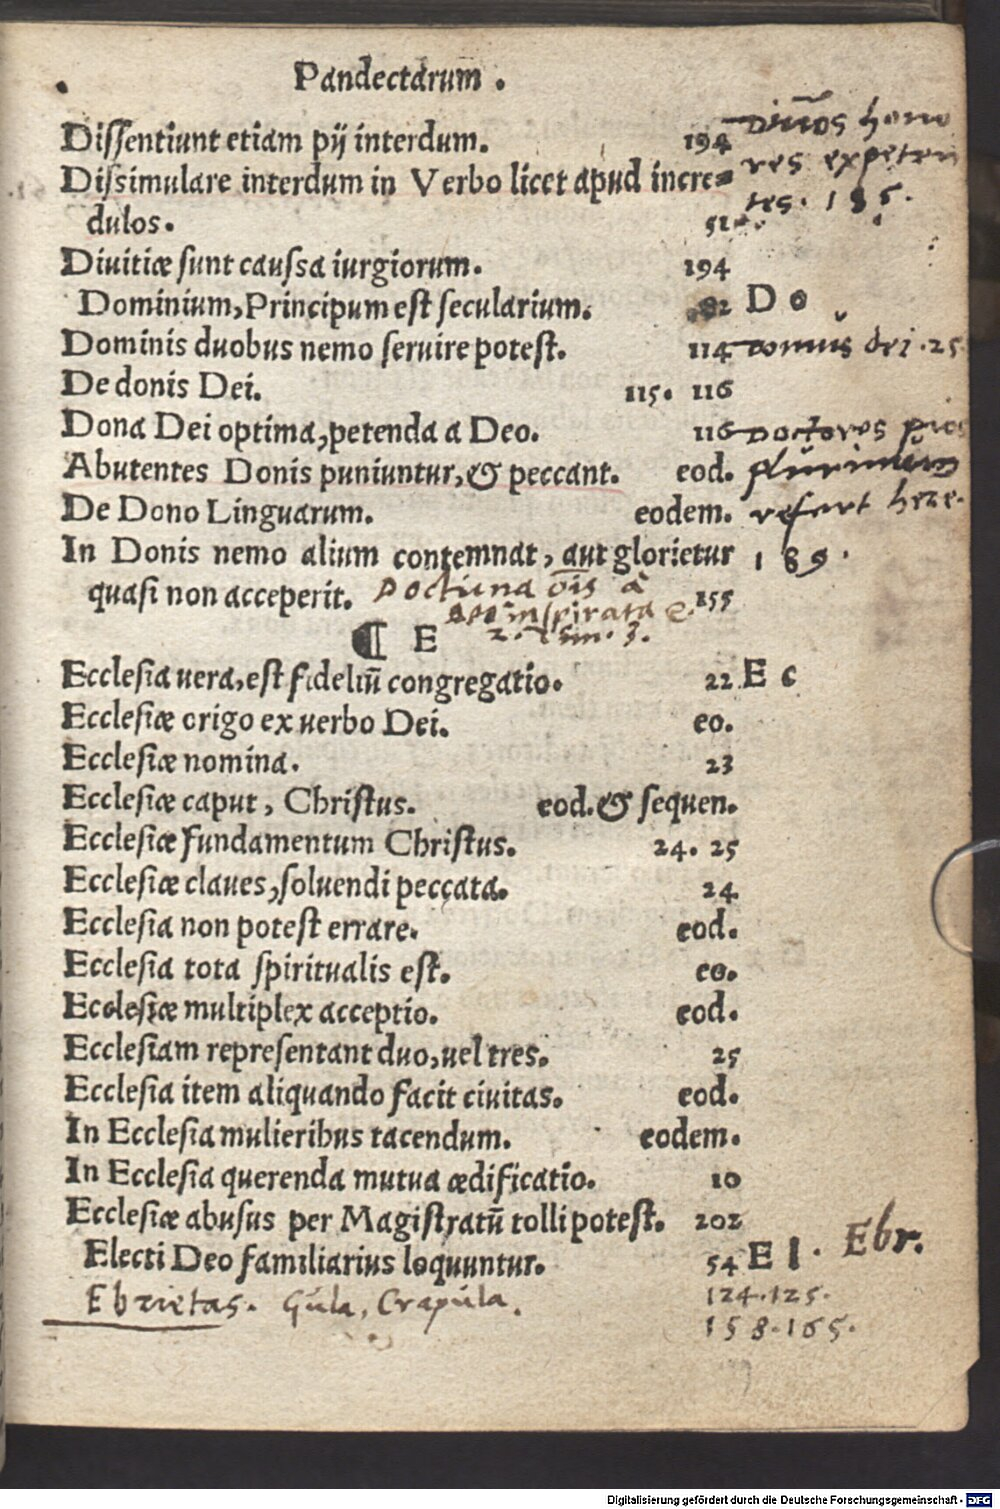 Pandectarum.
Dissentiunt etiam pij interdum. 194
Dissimulare interdum in Verbo licet apud incre=
dulos. 51
Diuitiæ sunt caussa iurgiorum. 194
Dominium, Principum est secularium. 82 Do
Dominis duobus nemo seruire potest. 114
De donis Dei. 115. 116
Dona Dei optima, petenda a Deo. 116
Abutentes Donis puniuntur, & peccant. eod.
De Dono Linguarum. eodem.
In Donis nemo alium contemnat, aut glorietur
quasi non acceperit. 155
¶ E
Ecclesia uera, est fideliū congregatio. 22 Ec
Ecclesiæ origo ex uerbo Dei. eo.
Ecclesiæ nomina. 23
Ecclesiæ caput, Christus. eod. & sequen.
Ecclesiæ fundamentum Christus. 24. 25
Ecclesiæ claues, soluendi peccata. 24
Ecclesia non potest errare. eod.
Ecclesia tota spiritualis est. eo.
Ecclesiæ multiplex acceptio. eod.
Ecclesiam representant duo, uel tres. 25
Ecclesia item aliquando facit ciuitas. eod.
In Ecclesia mulieribus tacendum. eodem.
In Ecclesia querenda mutua ædificatio. 10
Ecclesiæ abusus per Magistratū tolli potest. 202
Electi Deo familiarius loquuntur. 54 El. Ebr.
Ebrietas. Gula, Crapula. 124.125.
158.165.
Diuos hono
res expeten
tes. 185.
domus dei. 25
Doctores pios
plurimum
refert here.
189.
Doctrina oīs a
deo inspirata
2. Tim. 3.
Digitalisierung gefördert durch die Deutsche Forschungsgemeinschaft - DFG